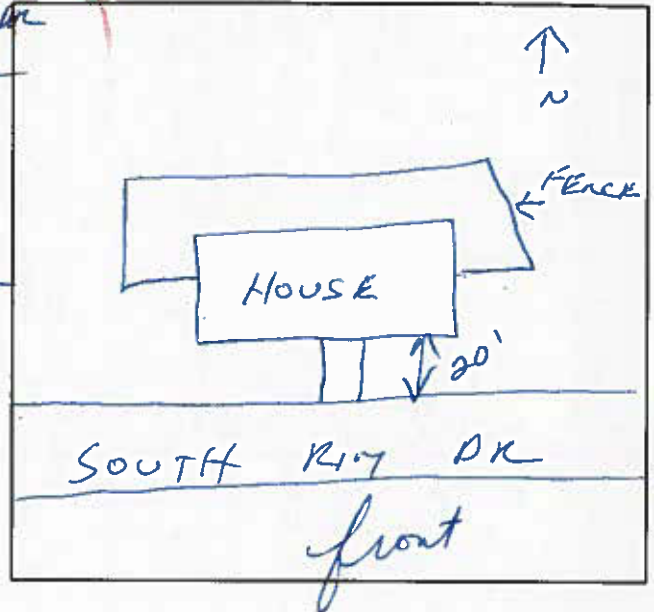 N
FENCE
HOUSE
20'
SOUTH RIM DR
front